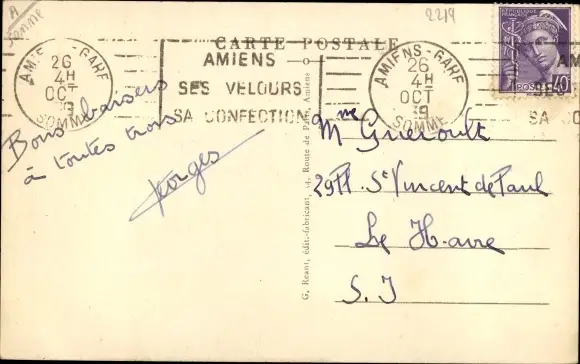 A
Somme
2219
CARTE POSTALE
AMIENS-GARE
26
4H
OCT
39
SOMME
AMIENS
SES VELOURS
SA CONFECTION
AMIENS-GARE
26
4H
OCT
39
SOMME
AM
SES
SA CO
POSTES 40
Bons baisers
à toutes trois
Georges
G. Réant, édit.-fabricant, 14, Route de Paris, Amiens
Mme Guéroult
29 Pl. St Vincent de Paul
Le Havre
S. I